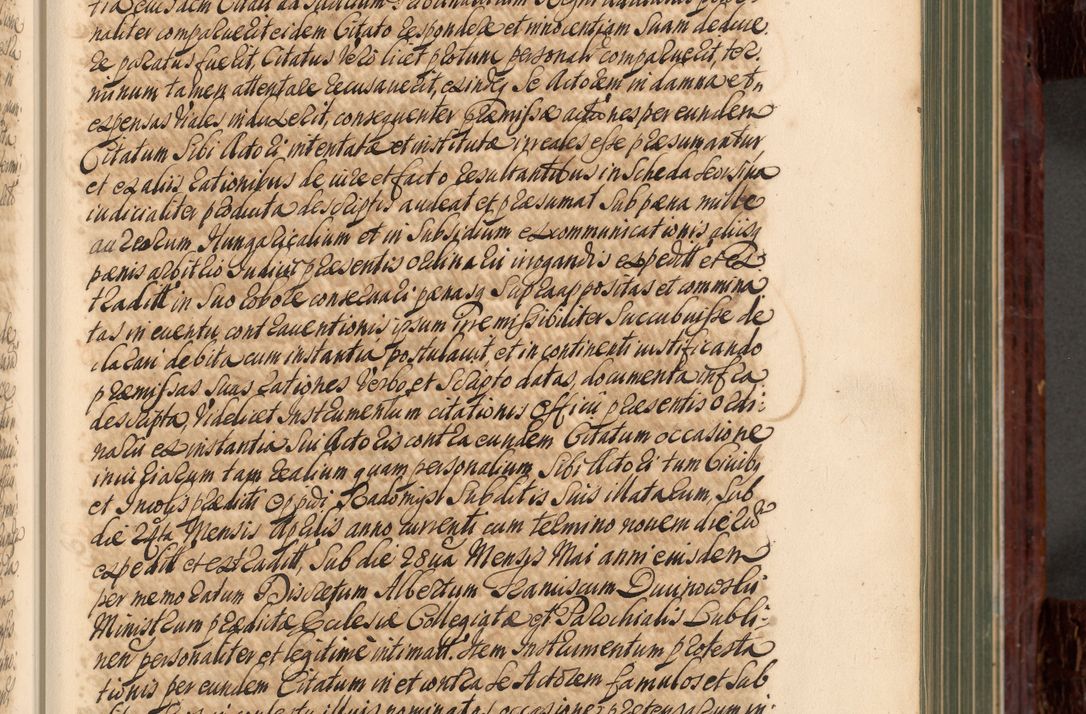 naliter comparuerit eidem Citato respondere et innocentiam Suam deduce:
re paratus fuerit, Citatus Vero licet protunc personalr comparuerit, ter:
minum tamen attentare recusaverit, exindeq Se Actorem in damna et
expensas Viales induxerit, consequenter Præmissæ actiones per eundem
Citatum Sibi Actori intentatæ et institutæ irreales esse præsumantur
et ex aliis rationibus de iure et facto resultantibus in Scheda Seorsiva
iudicialiter producta descriptis audeat et præsumat Sub pæna mille
aureorum Hungaricalium et in Subsidium excommunicationis aliisq
pænis arbitrio Iudicij præsentis ordinarii irrogandis expeditt et ex:
traditt in Suo robore conservari pænasq Supra appositas et commina
tas in eventu contraventionis ipsum irremissibiliter Succubuisse de
clarari debita cum instantia postulavit et in continenti iustificando
præmissas Suas rationes Verbo et Scripto datas, documenta infra
descripta, Videlicet Instrumentum citationis Officii præsentis ordi:
narii ex instantia Sui Actoris contra eundem Citatum occasione
iniuriarum tam realium quam personalium Sibi Actori tum Civibq
et Incolis præditti Oppidi Radomysl Subditis Suis illatarum, Sub
die 24ta Mensis Aprilis anno currenti cum termino novem dierum
expeditt et extraditt, Sub die 28va Mensis Mai anni eiusdem
per memoratum Discretum Albertum Franciscum
Ministrum prædictæ Ecclesiæ Collegiatæ et Parochialis Lubli:
nen personaliter et legitime intimatt. Item Instrumentum protesta
tionis per eundem Citatum in et contra Se Actorem famulos et Sub